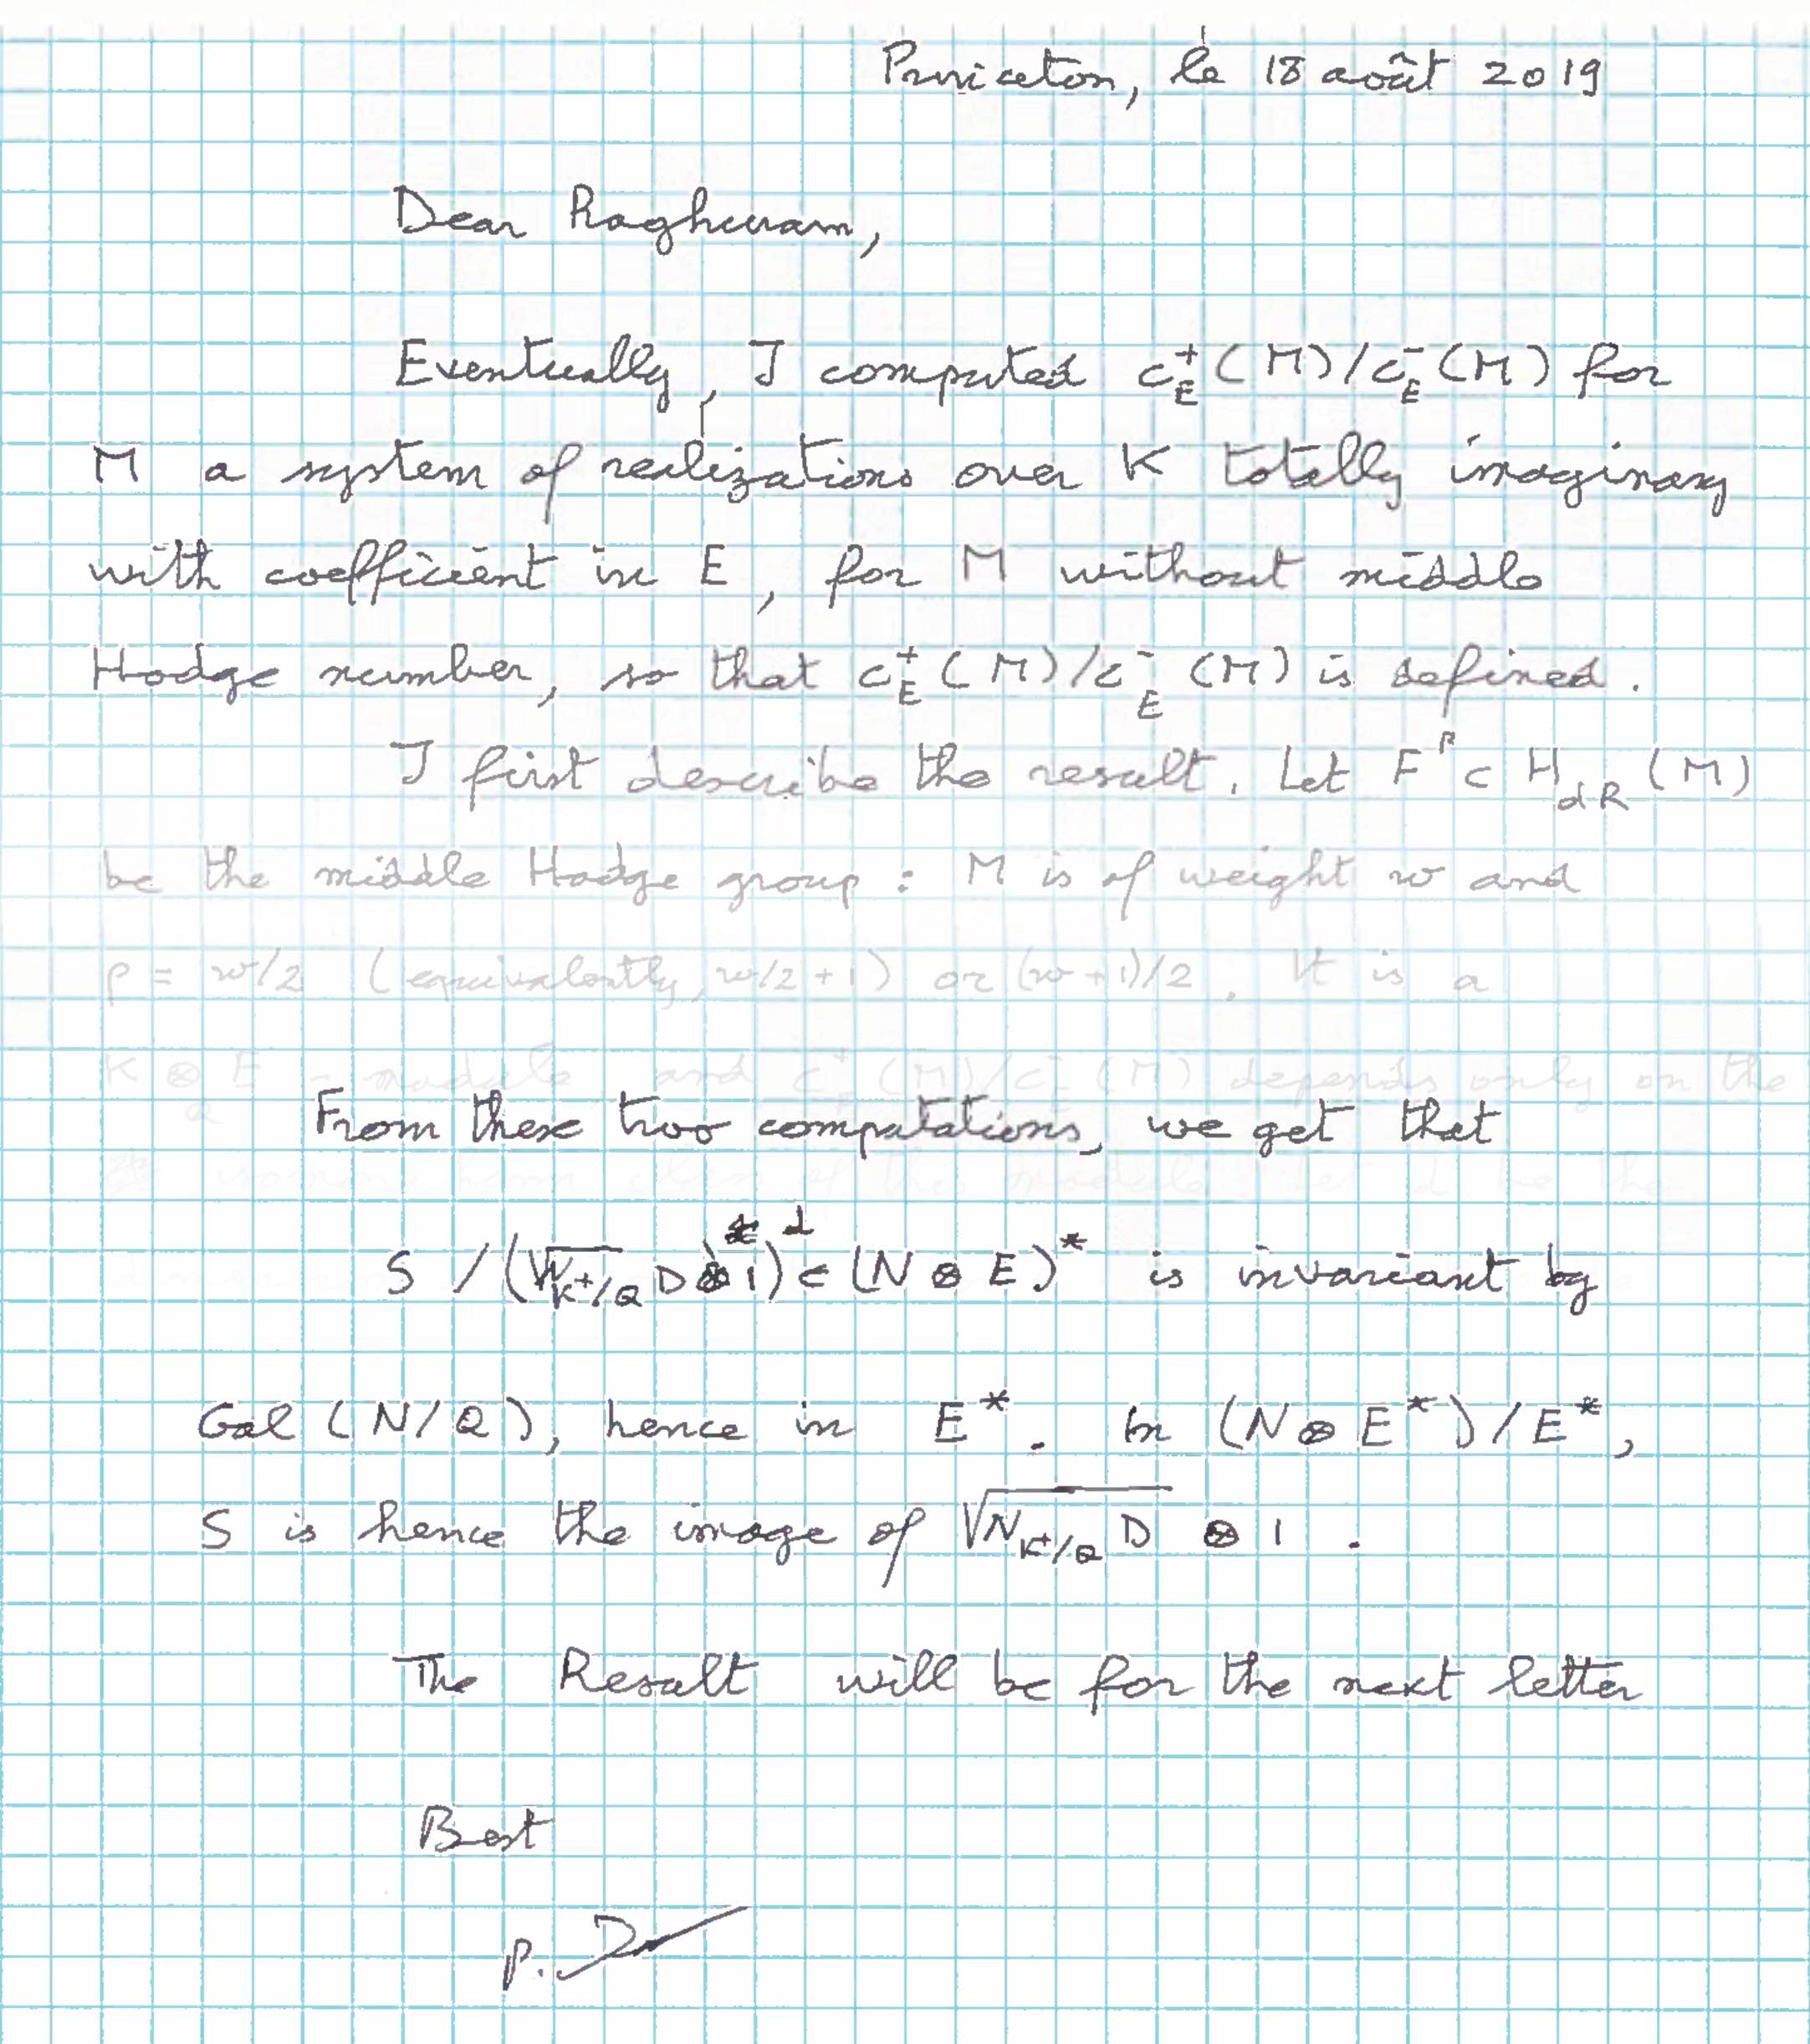 Princeton, le 18 août 2019
Dear Raghuram,
Eventually, I computed c⁺_E(M)/c⁻_E(M) for
M a system of realizations over K totally imaginary
with coefficient in E, for M without middle
Hodge number, so that c⁺_E(M)/c⁻_E(M) is defined.
I first describe the result. Let F^p ⊂ H_dR(M)
be the middle Hodge group: M is of weight w and
p = w/2 (equivalently, w/2+1) or (w+1)/2. It is a
K ⊗_Q E - module, and c⁺(M)/c⁻(M) depends only on the
isomorphism class of this module. Let d be the
From these two computations, we get that
S /(√N_{K⁺/Q} D ⊗ 1)^d ∈ (N ⊗ E)* is invariant by
Gal (N/Q), hence in E*. In (N ⊗ E*)/E*,
S is hence the image of √N_{K⁺/Q} D ⊗ 1.
The Result will be for the next letter
Best
P. D